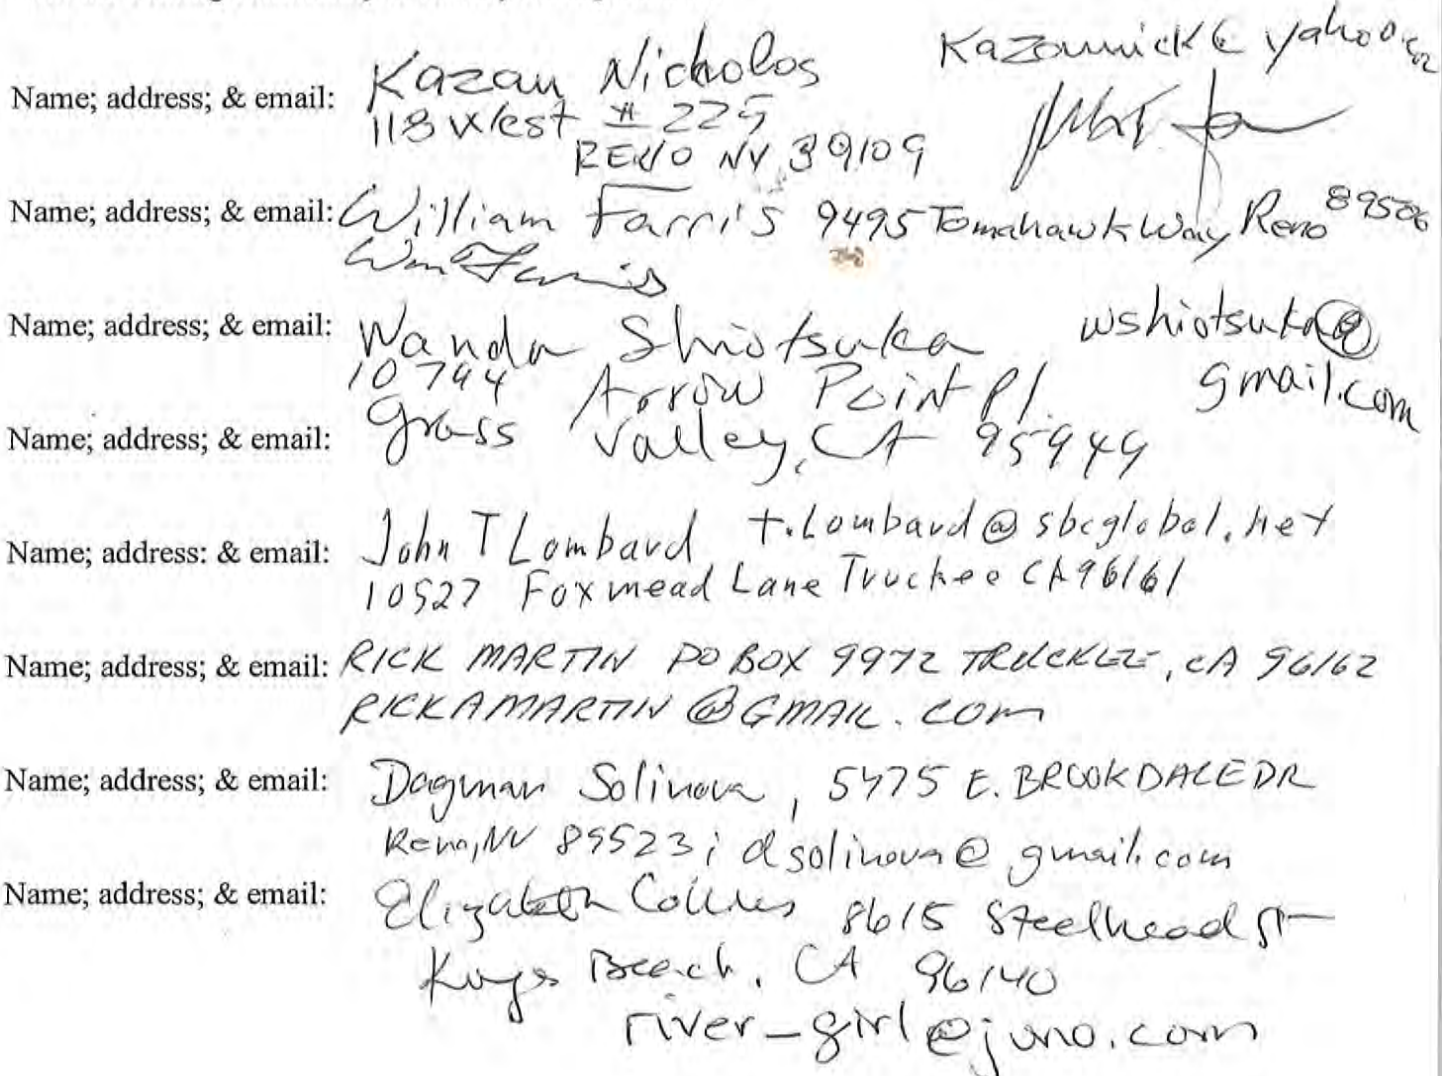 Name; address; & email: Kazan Nicholos Kazannick@yahoo
118 West # 225
RENO NV 89109
Name; address; & email: William Farris 9495 Tomahawk Way Reno 89506
Wm Farris
Name; address; & email: Wanda Shiotsuka wshiotsuka@
10744 Arrow Point Pl. gmail.com
Name; address; & email: Grass Valley, CA 95949
Name; address: & email: John T Lombard t.lombard@sbcglobal.net
10527 Foxmead Lane Truckee CA 96161
Name; address; & email: RICK MARTIN PO BOX 9972 TRUCKEE, CA 96162
RICKAMARTIN@GMAIL.COM
Name; address; & email: Dagmar Solinova, 5475 E. BROOKDALE DR
Reno, NV 89523; dsolinova@gmail.com
Name; address; & email: Elizabeth Collins 8615 Steelhead St
Kings Beach, CA 96140
river_girl@juno.com